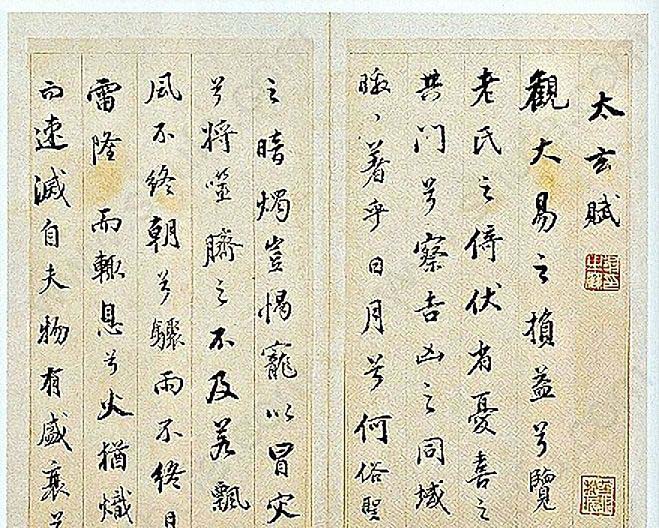 太玄賦
觀大易之損益兮覽
老氏之倚伏省憂喜之
共门兮察吉凶之同域
皦〻著乎日月兮何俗聖
之暗燭豈愒寵以冒灾
兮将噬臍之不及若飄
風不终朝兮驟雨不终日
雷隆而輒息兮火猶熾
而速滅自夫物有盛衰兮